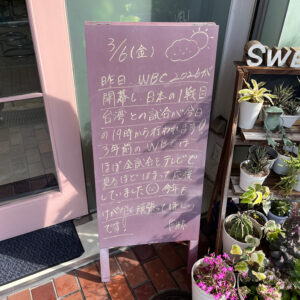 3/6(金)
昨日、WBC 2026が
開幕し、日本の1戦目
台湾との試合が今日
の19時から行われます!!
3年前のWBCは
ほぼ全試合をテレビで
見るほどはまって応援
していました 今年も
けがなく頑張ってほしい
です!!
SWE